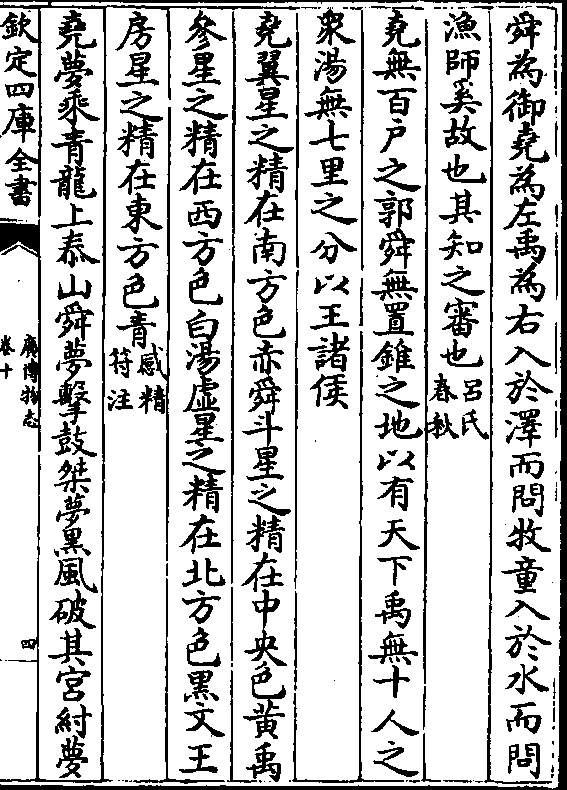 舜為御堯為左禹為右入於澤而問牧童入於水而問
漁師奚故也其知之審也呂氏春秋
堯無百戶之郭舜無置錐之地以有天下禹無十人之
衆湯無七里之分以王諸侯
堯翼星之精在南方色赤舜斗星之精在中央色黃禹
參星之精在西方色白湯虛星之精在北方色黑文王
房星之精在東方色青感精符注
堯夢乘青龍上泰山舜夢擊鼓桀夢黑風破其宮紂夢
欽定四庫全書
廣博物志
卷十
四